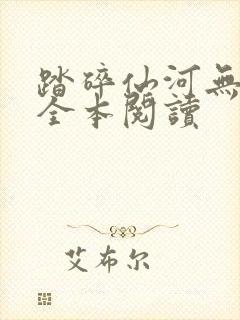 踏碎仙河無
全本閱讀
艾布尔